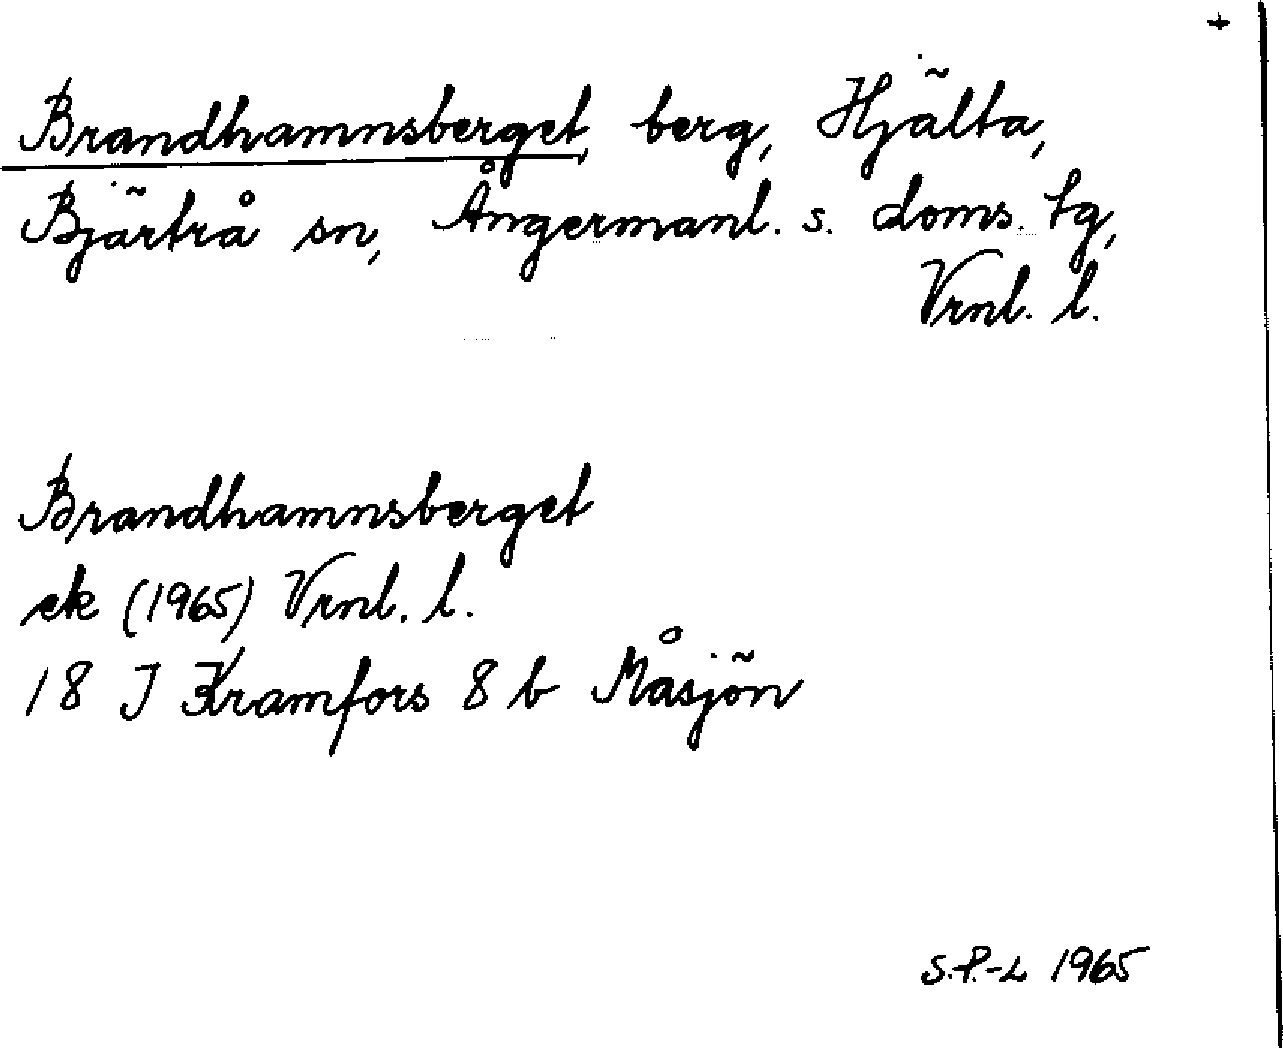 +
Brandhamnsberget, berg, Hjälta,
Bjärtrå sn, Ångermanl. s. doms. tg,
Vrnl. l.
Brandhamnsberget
ek (1965) Vrnl. l.
18 J Kramfors 8 b Måsjön
S.P.-L 1965